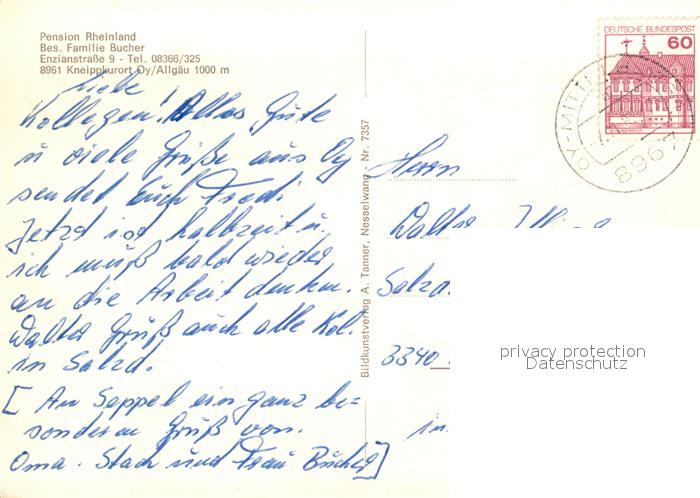 Pension Rheinland
Bes. Familie Bucher
Enzianstraße 9 - Tel. 08366/325
8961 Kneippkurort Oy/Allgäu 1000 m
Liebe
Kollegen! Alles Gute
u viele Grüße aus Oy
sendet Euch Fredi.
Jetzt ist halbzeit u.
ich muß bald wieder
an die Arbeit denken.
Walter Grüß auch alle Kol.
in Salzd.
[ An Seppel ein ganz be=
sonderen Gruß von.
Oma. Stach und Frau Bucher]
Bildkunstverlag A. Tanner, Nesselwang, Nr. 7357
DEUTSCHE BUNDESPOST
60
OY-MITT
8967
Herrn
Walter
Salzd.
3340
in
privacy protection
Datenschutz